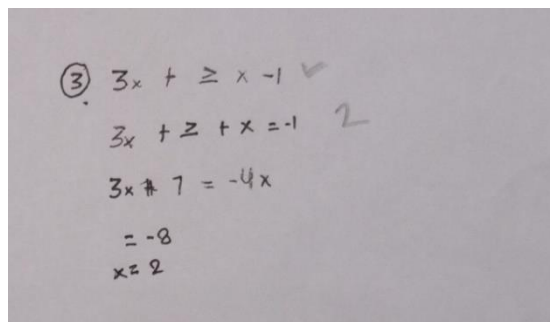 ③ 3x + ≥ x -1 ✓
3x + z + x = -1 2
3x # 7 = -4x
= -8
x = 2